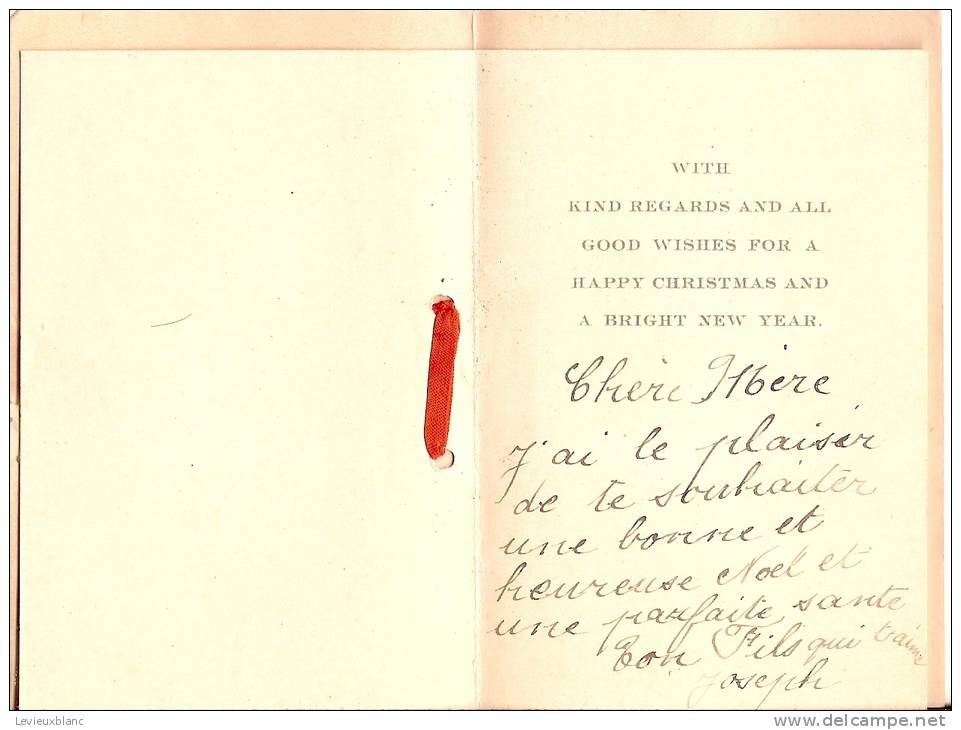 WITH
KIND REGARDS AND ALL
GOOD WISHES FOR A
HAPPY CHRISTMAS AND
A BRIGHT NEW YEAR.
Chère Mère
J'ai le plaisir
de te souhaiter
une bonne et
heureuse Noël et
une parfaite sante
Ton Fils qui t'aime
Joseph
Levieuxblanc
www.delcampe.net